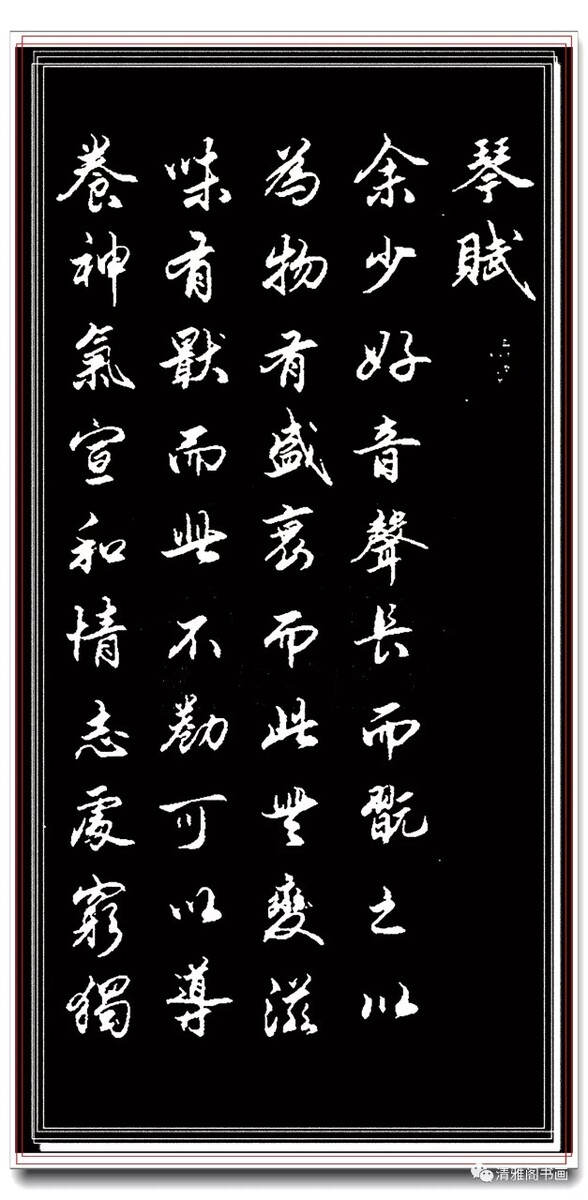 琴賦
余少好音聲長而翫之以
為物有盛衰而此無變滋
味有厭而此不勌可以導
養神氣宣和情志處窮獨
清雅阁书画